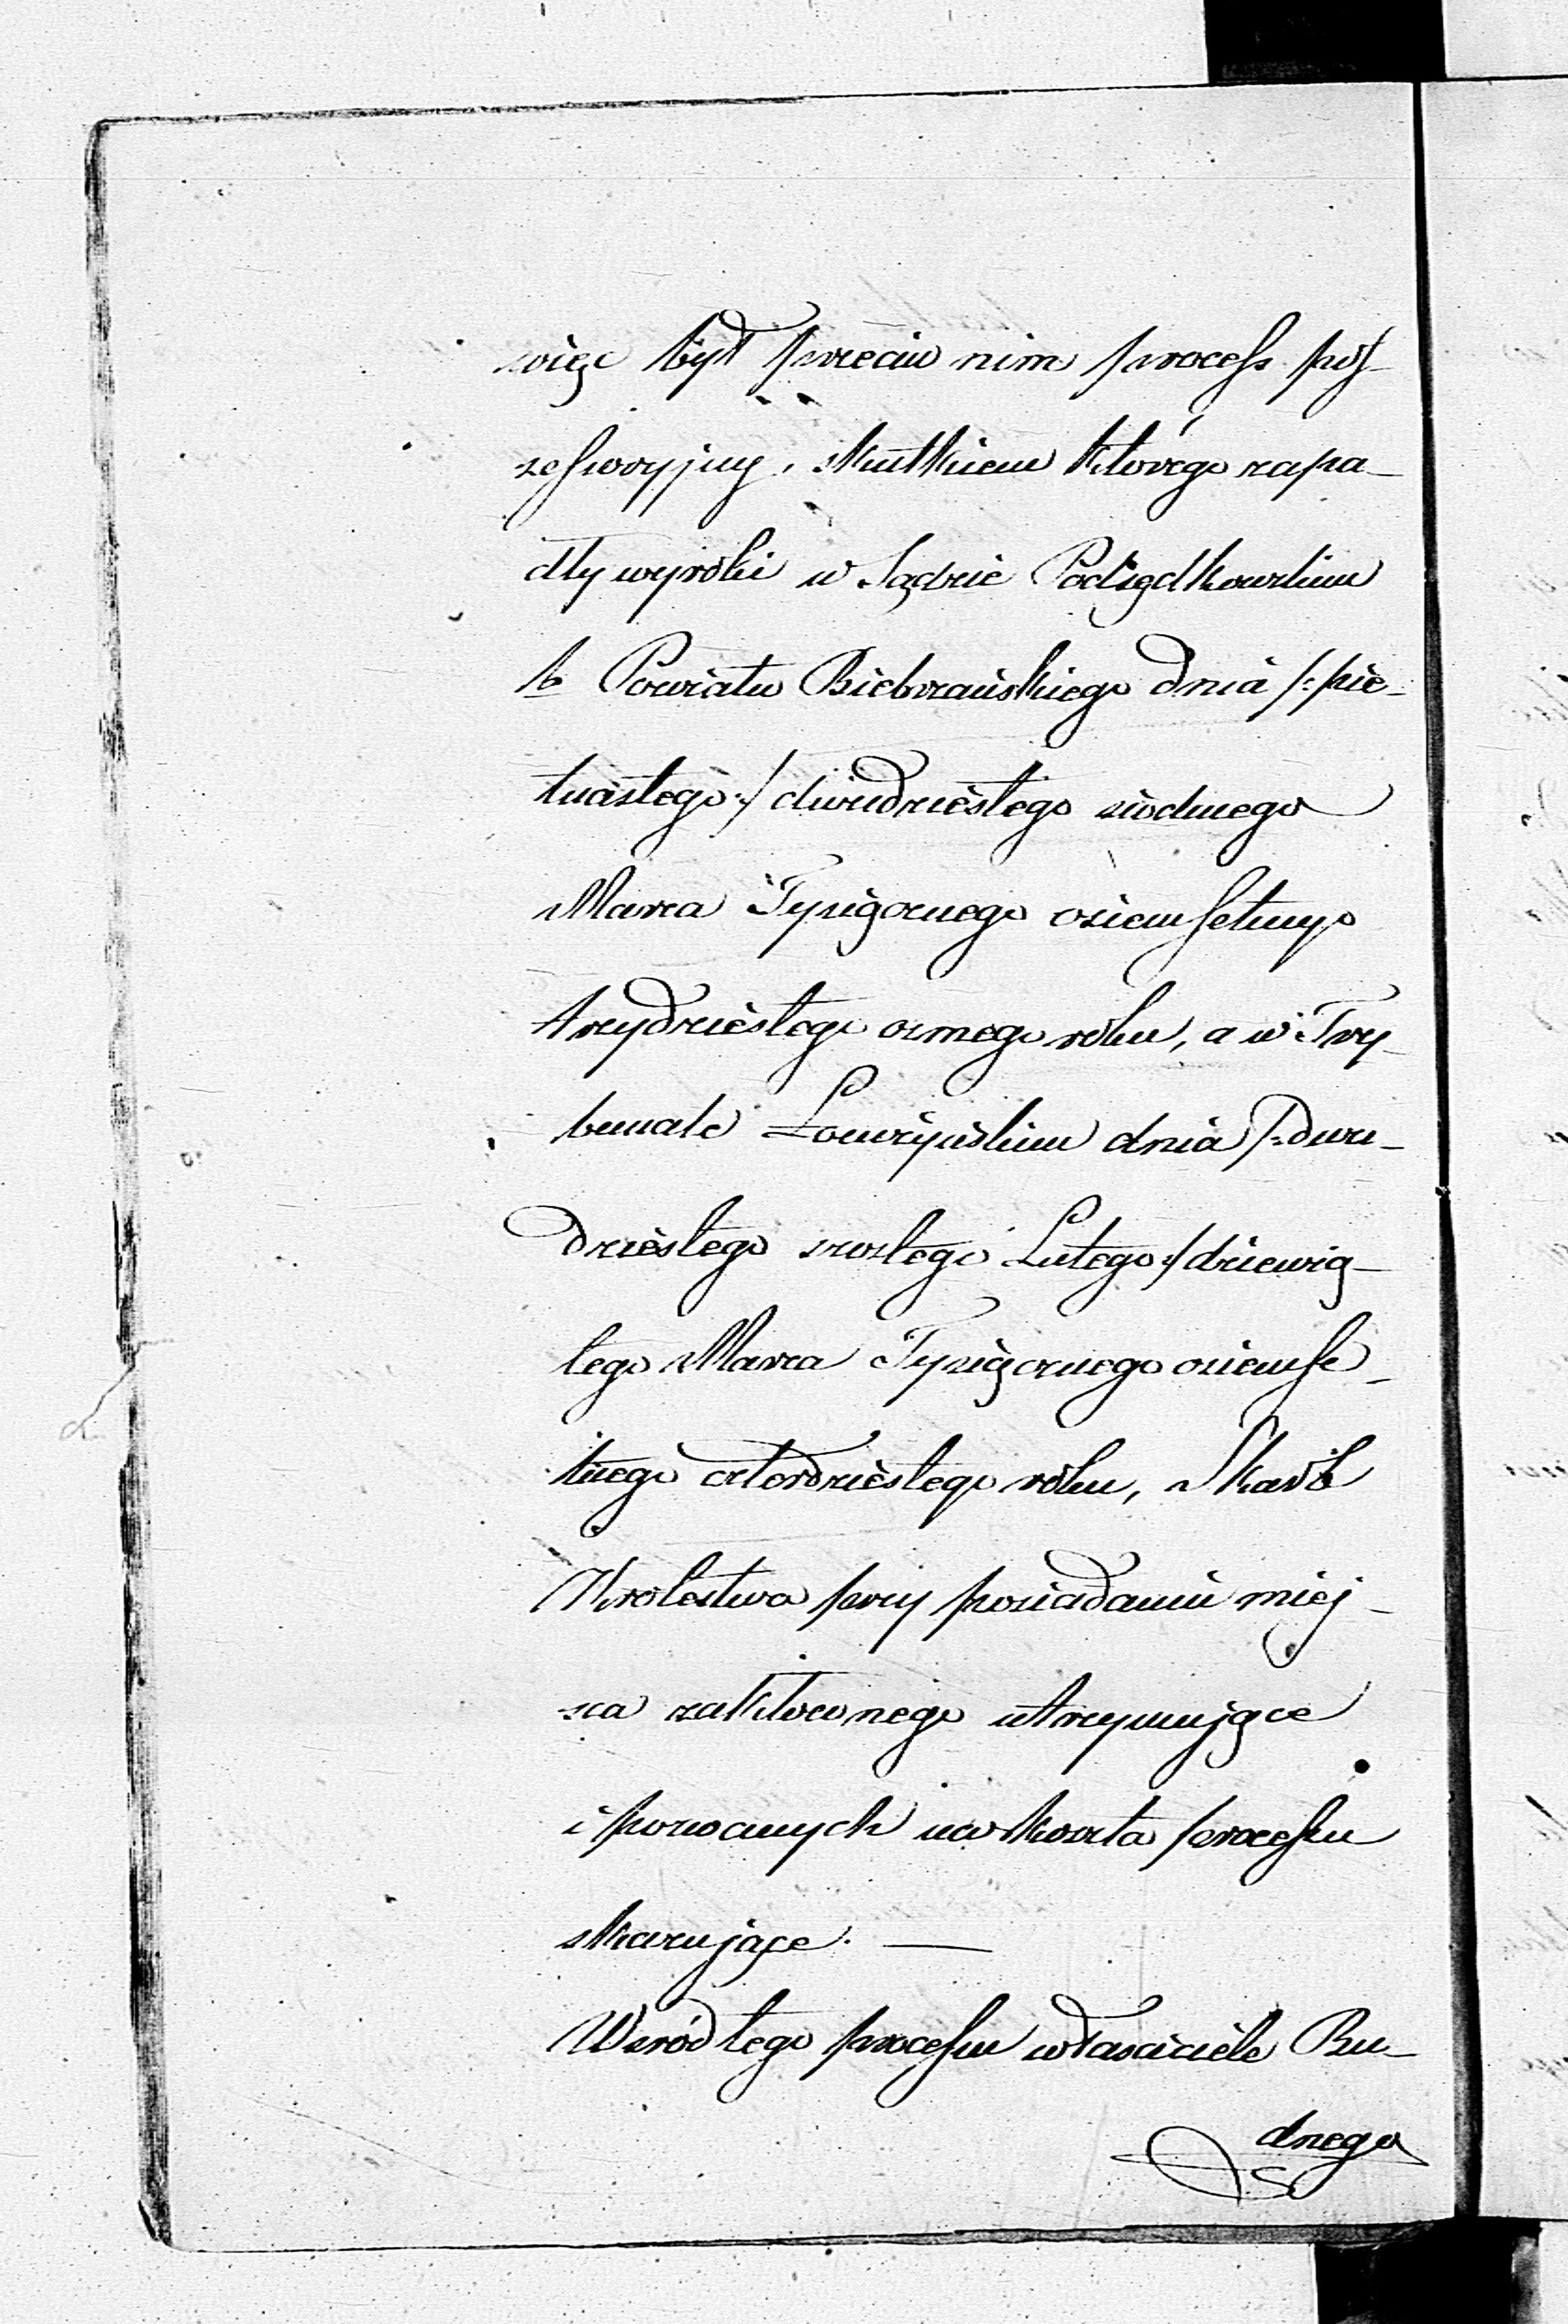 więc był przeciw nim process pos-
sessoryjny, skutkiem którego zapa-
dły wyroki w Sądzie Podsędkowskim
b. Powiatu Biebrzańskiego dnia /:pię-
tnastego:/ dwudziestego siodmego
Marca Tysiącznego osiemsetnego
trzydziestego osmego roku, a w Try-
bunale Łomżyńskim dnia /:dwu-
dziestego szostego Lutego:/ dziewią-
tego Marca Tysiącznego osiemse-
tnego czterdziestego roku, Skarb
Krolestwa przy posiadaniu miej-
sca zakłoconego utrzymujące
i pozwanych na koszta processu
skazujące. —
Wsród tego processu własciciele Bu-
dnego